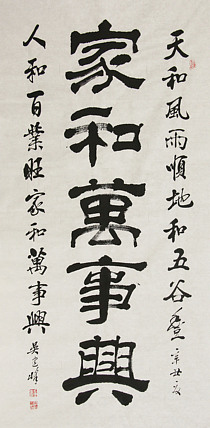 天和風雨順地和五谷登辛丑夏
家和萬事興
人和百業旺家和萬事興吳